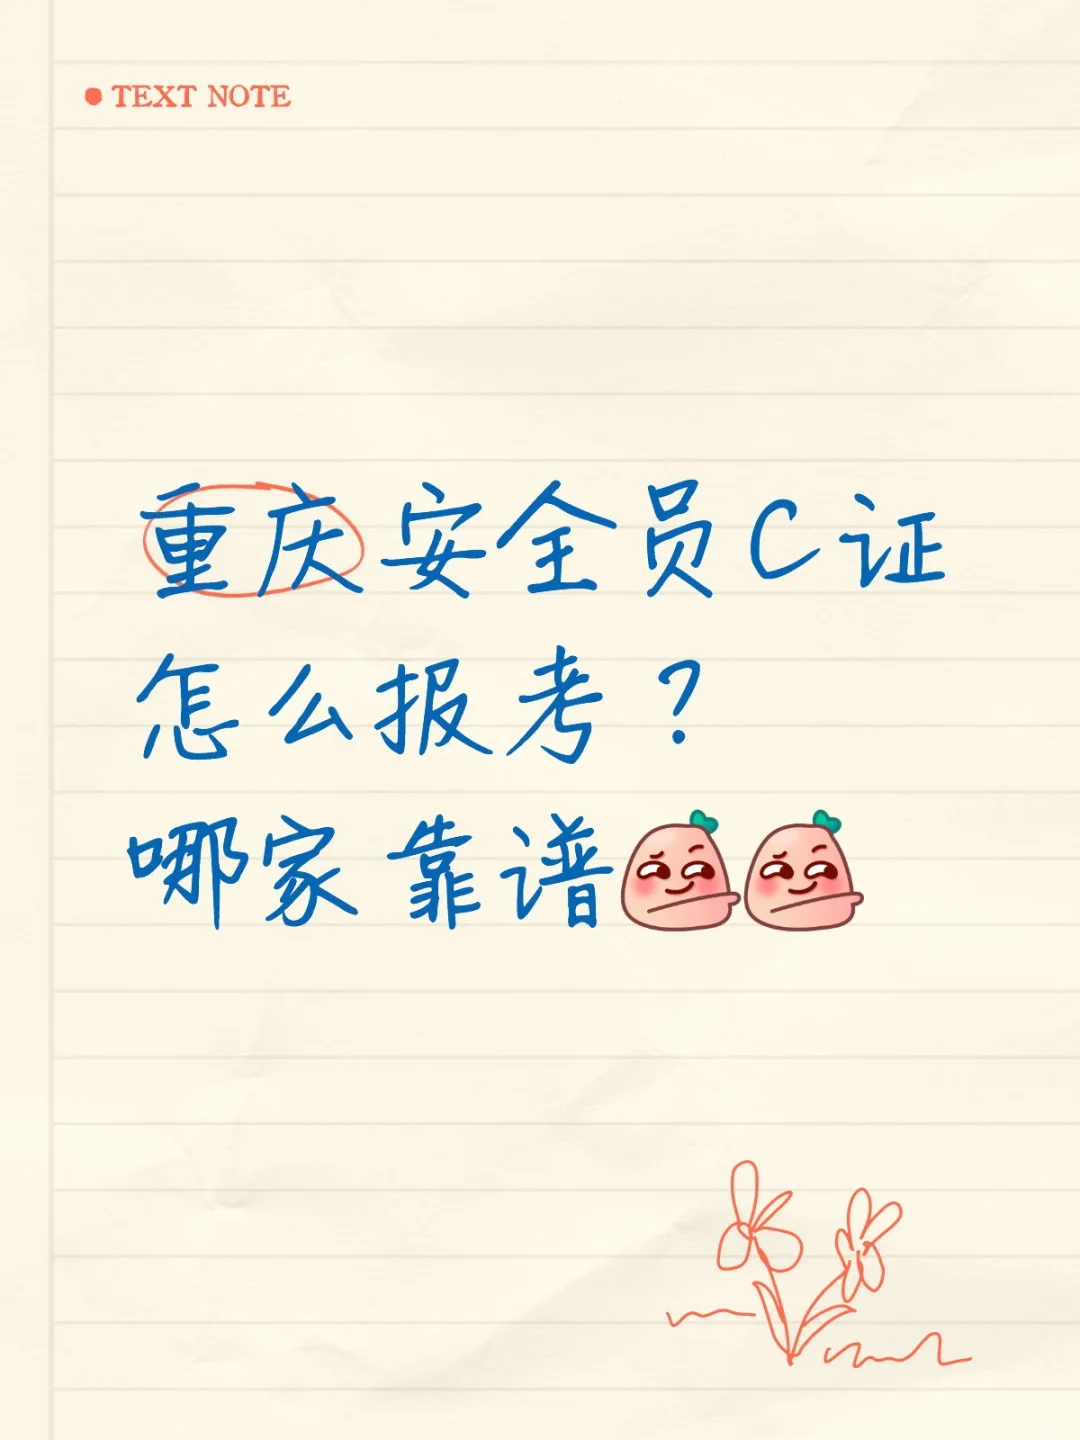 TEXT NOTE
重庆安全员C证
怎么报考？
哪家靠谱